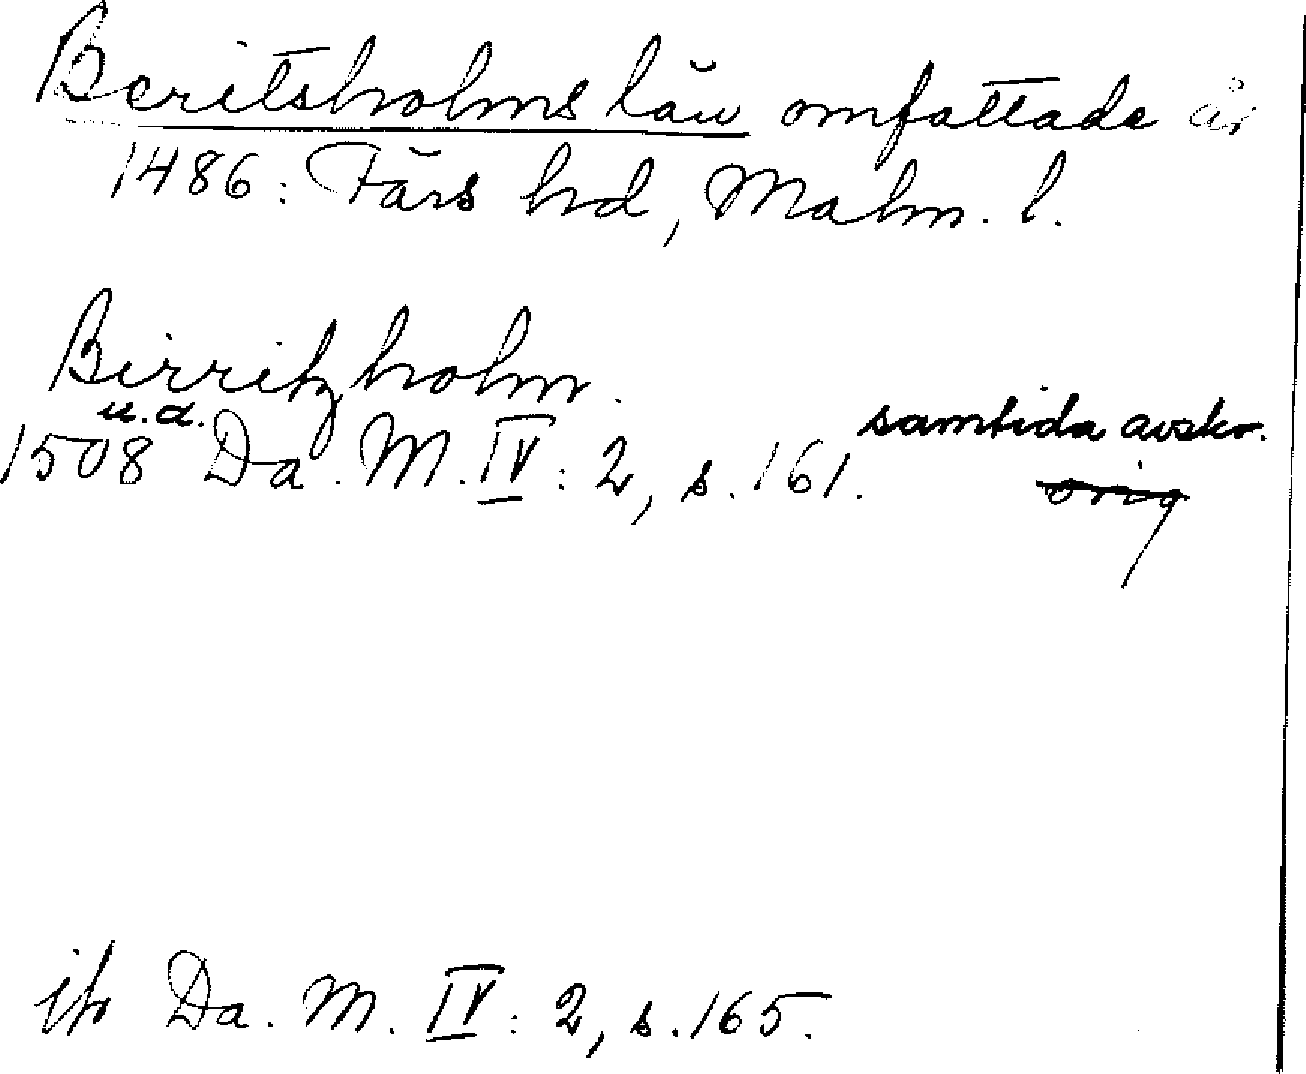 Beritsholms län omfattade år
1486: Färs hd, Malm. l.
Birritzholm.
u.d.
samtida avskr.
1508 Da. M. IV: 2, s. 161. orig
jfr Da. M. IV: 2, s. 165.